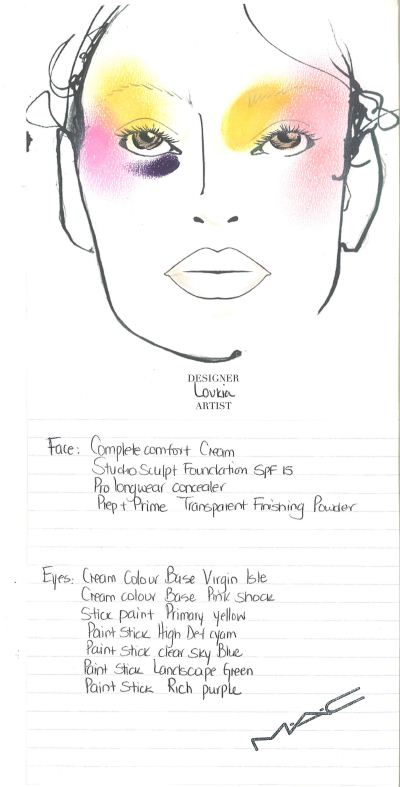 DESIGNER
Loukia
ARTIST
Face: Complete comfort Cream
Studio Sculpt Foundation SPF 15
Pro longwear concealer
Prep + Prime Transparent Finishing Powder
Eyes: Cream Colour Base Virgin Isle
Cream colour Base Pink Shock
Stick paint Primary yellow
Paint Stick High Def cyam
Paint Stick clear Sky Blue
Paint Stick Landscape Green
Paint Stick Rich purple
M·A·C